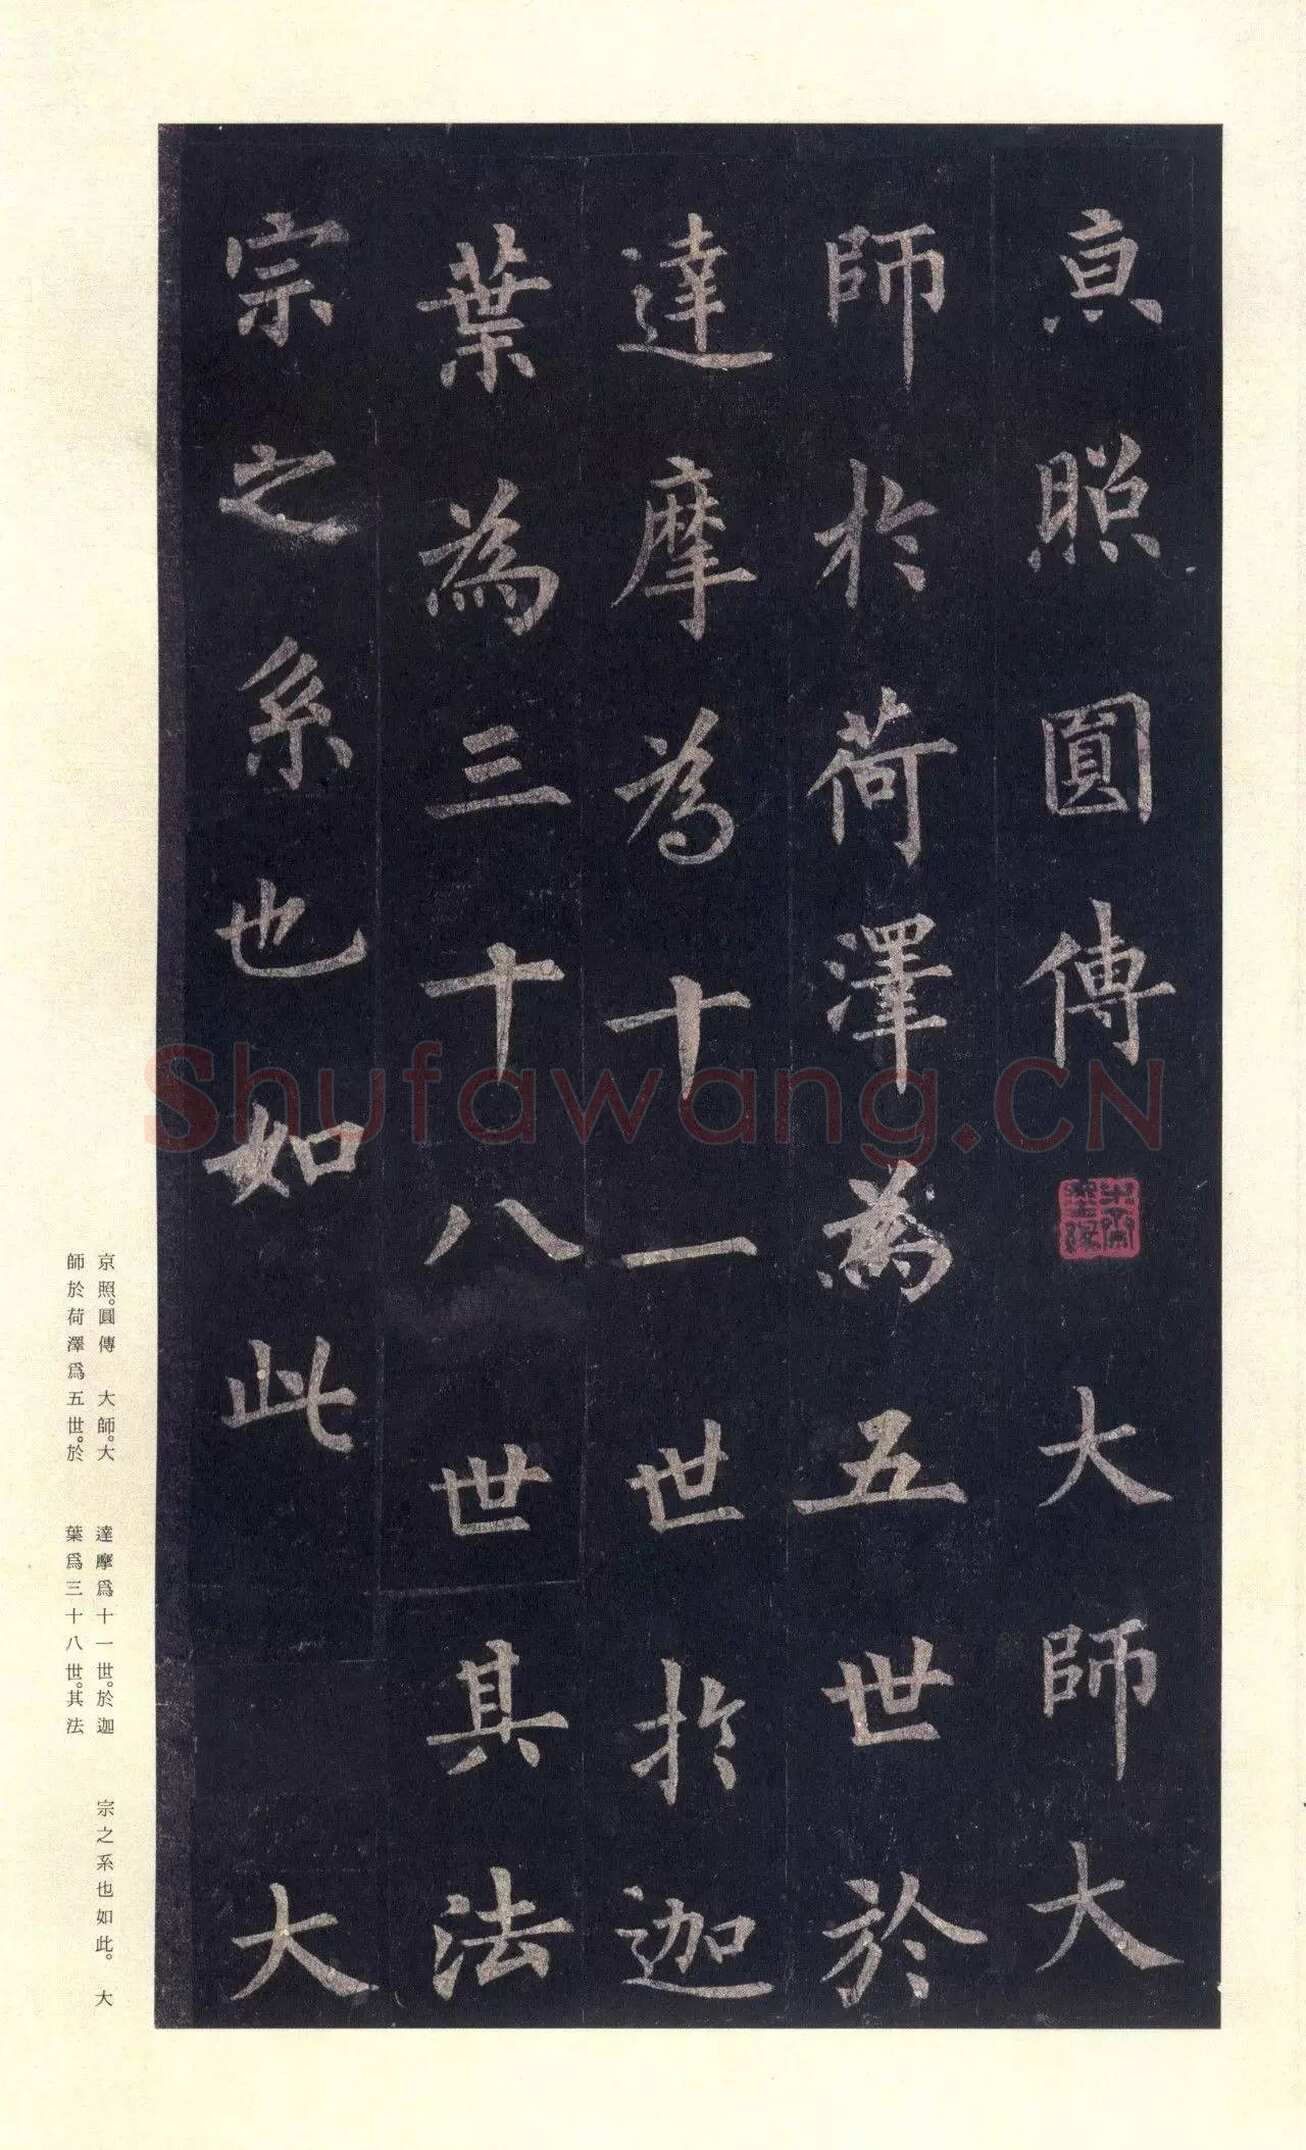 京照圓傳 大師大
師於荷澤為五世於
達摩為十一世於迦
葉為三十八世其法
宗之系也如此 大
京照。圓傳 大師。大
師於荷澤爲五世。於
達摩爲十一世。於迦
葉爲三十八世。其法
宗之系也如此。 大
Shufawang.CN